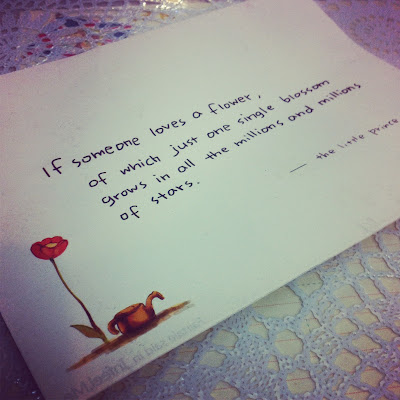 If someone loves a flower,
of which just one single blossom
grows in all the millions and millions
of stars.
— the little prince